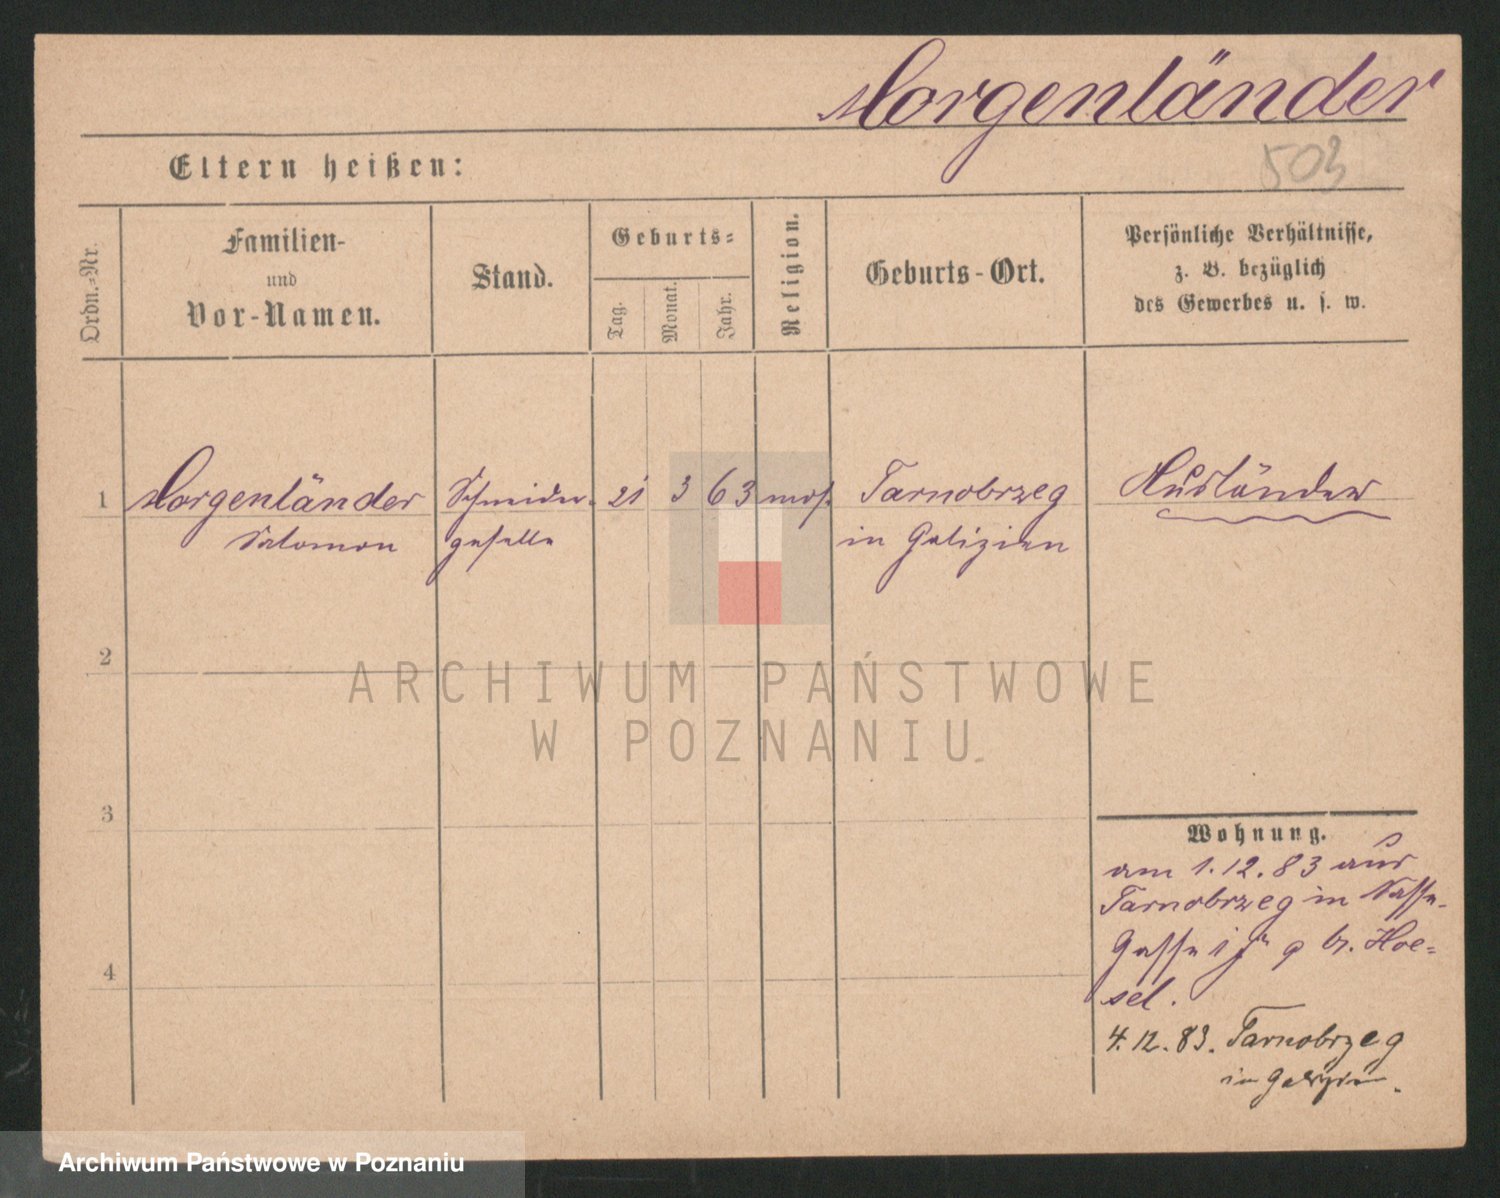 Morgenländer
503
Eltern heißen:
Ordn.-Nr.
Familien-
und
Vor-Namen.
Stand.
Geburts-
Tag.
Monat.
Jahr.
Religion.
Geburts-Ort.
Persönliche Verhältnisse,
z. B. bezüglich
des Gewerbes u. s. w.
1 Morgenländer Schneider- 21 3 63 mos. Tarnobrzeg Ausländer
Salomon geselle in Galizien
2
3
4
Wohnung.
am 1.12.83 aus
Tarnobrzeg in
Gasse b. Hoe-
sel.
4.12.83. Tarnobrzeg
in Galizien.
ARCHIWUM PAŃSTWOWE
W POZNANIU
Archiwum Państwowe w Poznaniu